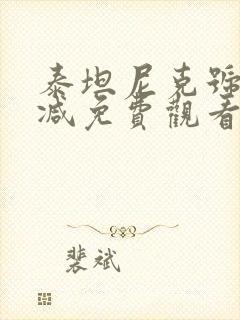 泰坦尼克號
减免費觀看
裴斌